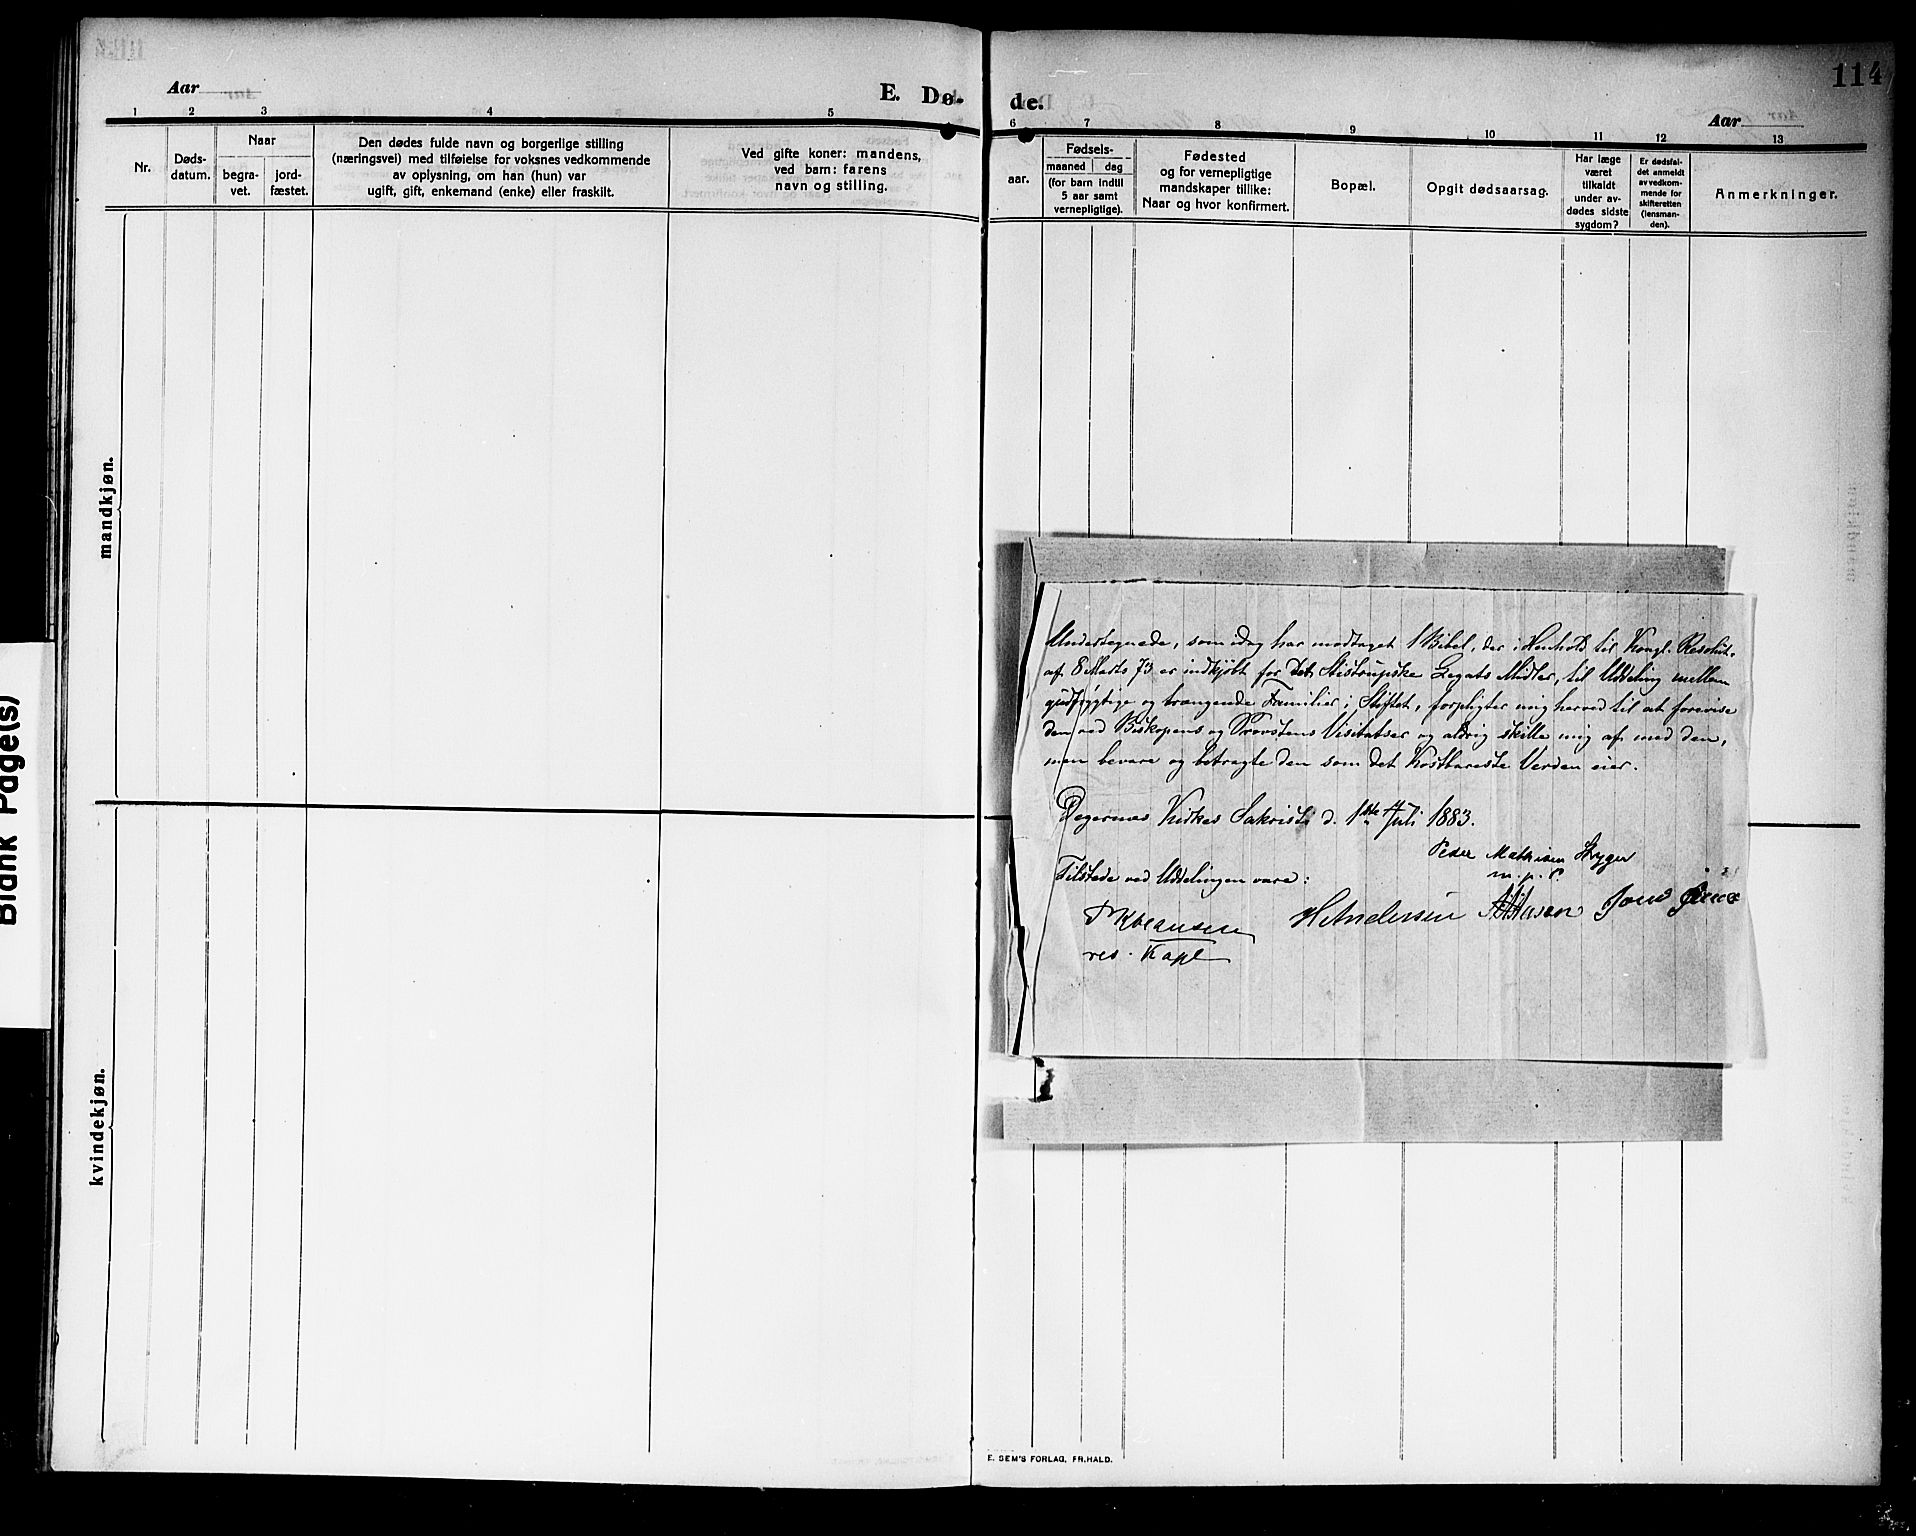 114
Aar
E. Dø-
de.
Aar
1 2 3 4 5 6 7 8 9 10 11 12 13
Nr.
Døds-
datum.
Naar
begra-
vet.
jord-
fæstet.
Den dødes fulde navn og borgerlige stilling
(næringsvei) med tilføielse for voksnes vedkommende
av oplysning, om han (hun) var
ugift, gift, enkemand (enke) eller fraskilt.
Ved gifte koner: mandens,
ved barn: farens
navn og stilling.
aar.
Fødsels-
maaned dag
(for barn indtil
5 aar samt
vernepligtige).
Fødested
og for vernepligtige
mandskaper tillike:
Naar og hvor konfirmert.
Bopæl.
Opgit dødsaarsag.
Har læge
været
tilkaldt
under av-
dødes sidste
sygdom?
Er dødsfal-
det anmeldt
av vedkom-
mende for
skifteretten
(lensman-
den).
Anmerkninger.
mandkjøn.
kvindekjøn.
Blank Page(s)
Undertegnede, som idag har modtaget 1 Bibel, der i Henhold til Kongl. Resolut.
af 8 Marts 73 er indkjøbt for Det Stistrupske Legats Midler, til Uddeling mellem
gudfrygtige og trængende Familier i Stiftet, forpligter mig herved til at forevise
den ved Biskopens og Provstens Visitatser og aldrig skille mig af med den,
men bevare og betragte den som det Kostbareste Verden eier.
Degernes Kirkes Sakristi d. 1ste Juli 1883.
Peder Mathisen Stryger
m. p. P.
Tilstede ved Uddelingen vare:
H Andersen Jens
res. Kapl
E. SEM'S FORLAG, FR.HALD.